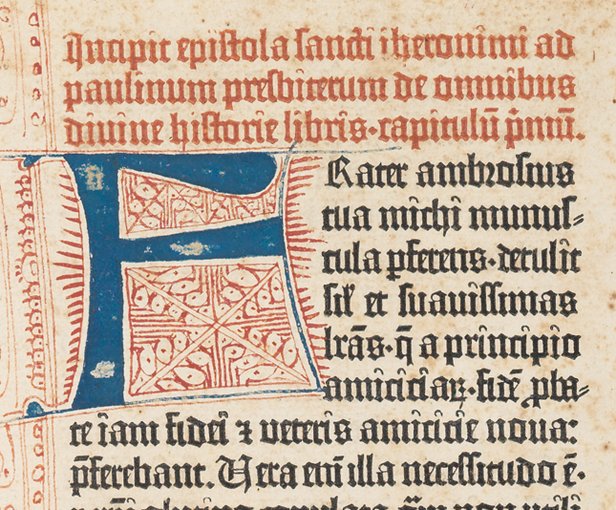 Incipit epistola sancti iheronimi ad
paulinum presbiterum de omnibus
divine historie libris·capitulū p̄mū.
FRater ambrosius
tua michi munus-
cula pferens·detulit
sil' et suavissimas
lr̄as·q̄ a principio
amiciciaꝝ·fidē pba-
te iam fidei ⁊ veteris amicicie nova:
p̄ferebant. Vera eni illa necessitudo ē·